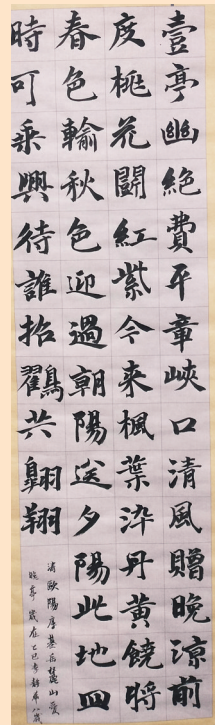 壹亭幽絕費平章峽口清風贈晚涼前
度桃花鬪紅紫今來楓葉染丹黃饒將
春色輸秋色迎過朝陽送夕陽此地四
時可乘興待誰招鶴共翱翔
清歐陽厚基岳麓山愛
晚亭 歲在乙巳春